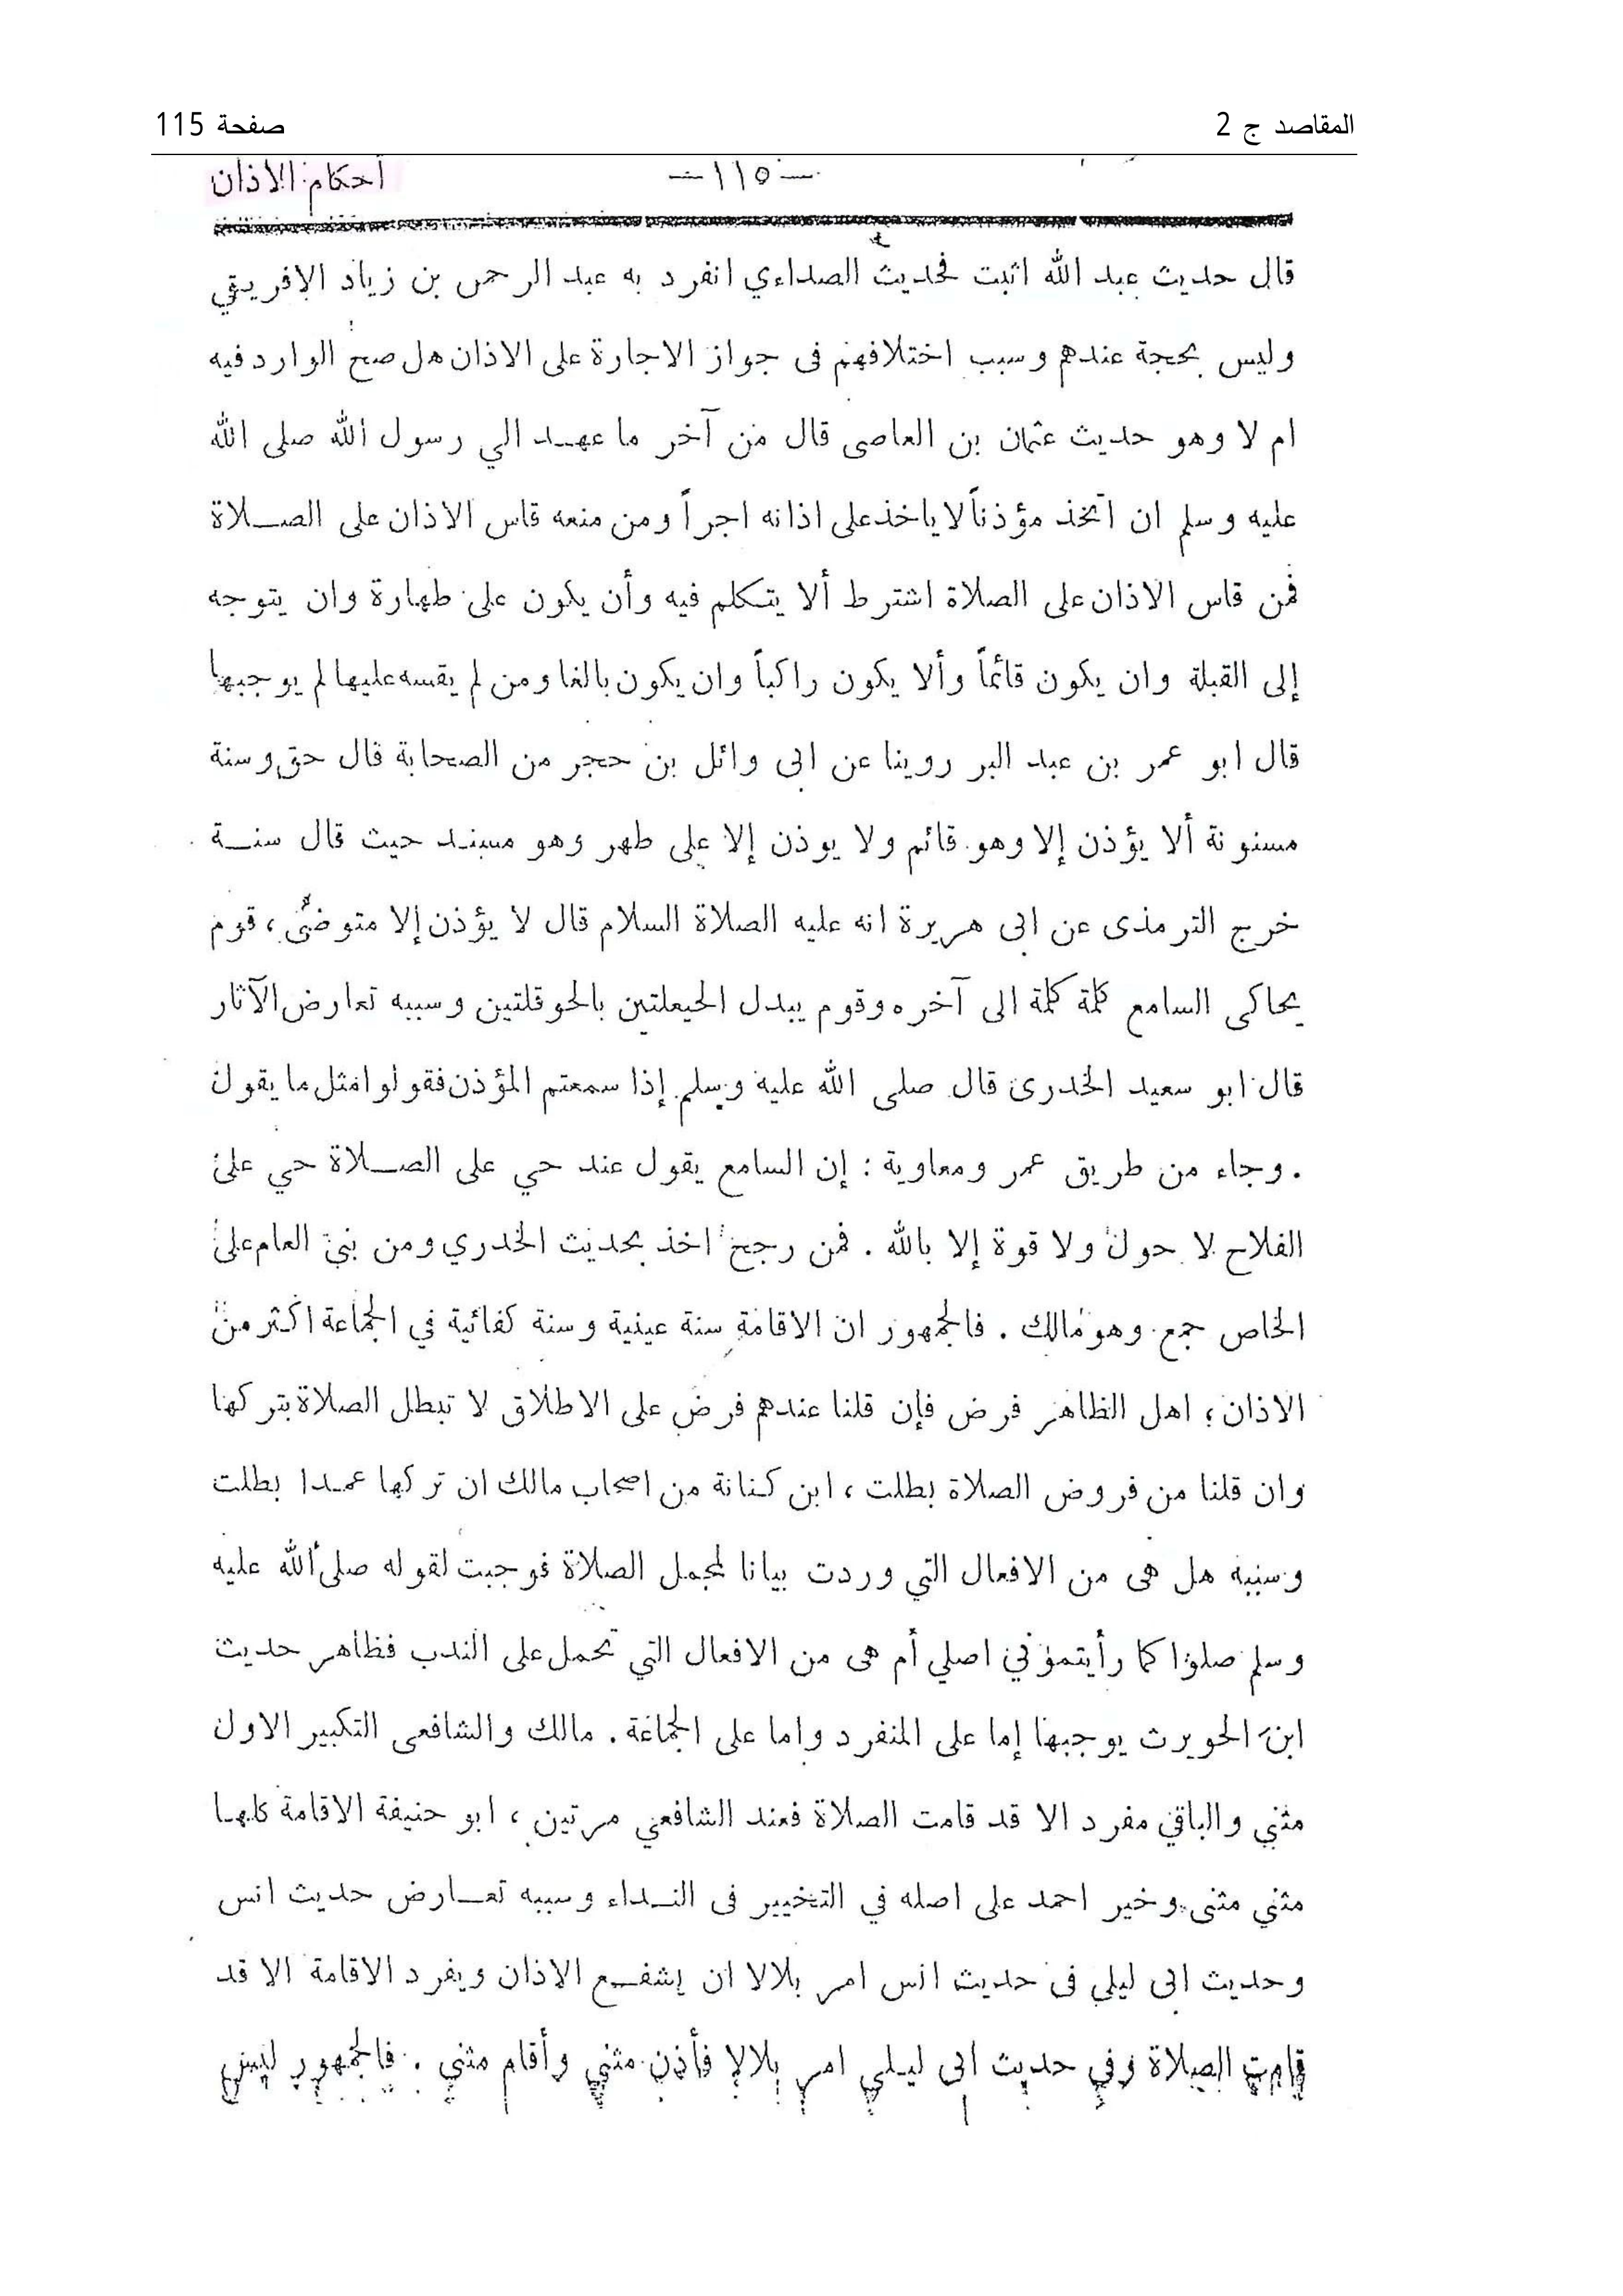 المقاصد ج 2
صفحة 115
أحكام الاذان
— ١١٥ —
قال حديث عبد الله اثبت فحديث الصداءي انفرد به عبد الرحمن بن زياد الافريقي
وليس بحجة عندهم وسبب اختلافهم فى جواز الاجارة على الاذان هل صح الوارد فيه
ام لا وهو حديث عثمان بن العاصى قال من آخر ما عهد الي رسول الله صلى الله
عليه وسلم ان اتخذ مؤذناً لا ياخذ على اذانه اجراً ومن منعه قاس الاذان على الصلاة
فمن قاس الاذان على الصلاة اشترط ألا يتكلم فيه وأن يكون على طهارة وان يتوجه
إلى القبلة وان يكون قائماً وألا يكون راكباً وان يكون بالغا ومن لم يقسه عليها لم يوجبها
قال ابو عمر بن عبد البر روينا عن ابى وائل بن حجر من الصحابة قال حق وسنة
مسنونة ألا يؤذن إلا وهو قائم ولا يوذن إلا على طهر وهو مسند حيث قال سنة
خرج الترمذى عن ابى هريرة انه عليه الصلاة السلام قال لا يؤذن إلا متوضئ ، قوم
يحاكى السامع كلمة كلمة الى آخره وقوم يبدل الحيعلتين بالحوقلتين وسببه تعارض الآثار
قال ابو سعيد الخدرى قال صلى الله عليه وسلم إذا سمعتم المؤذن فقولوا مثل ما يقول
. وجاء من طريق عمر ومعاوية : إن السامع يقول عند حي على الصلاة حي على
الفلاح لا حول ولا قوة إلا بالله . فمن رجح اخذ بحديث الخدري ومن بنى العام على
الخاص جمع وهو مالك . فالجمهور ان الاقامة سنة عينية وسنة كفائية في الجماعة اكثر من
الاذان ؛ اهل الظاهر فرض فإن قلنا عندهم فرض على الاطلاق لا تبطل الصلاة بتركها
وان قلنا من فروض الصلاة بطلت ، ابن كنانة من اصحاب مالك ان تركها عمدا بطلت
وسببه هل هى من الافعال التي وردت بيانا لمجمل الصلاة فوجبت لقوله صلى الله عليه
وسلم صلوا كما رأيتموني اصلي أم هى من الافعال التي تحمل على الندب فظاهر حديث
ابن الحويرث يوجبها إما على المنفرد واما على الجماعة . مالك والشافعى التكبير الاول
مثني والباقي مفرد الا قد قامت الصلاة فعند الشافعي مرتين ، ابو حنيفة الاقامة كلها
مثني مثنى وخير احمد على اصله في التخيير فى النداء وسببه تعارض حديث انس
وحديث ابى ليلي فى حديث انس امر بلالا ان يشفع الاذان ويفرد الاقامة الا قد
قامت الصلاة وفي حديث ابى ليلي امر بلالا فأذن مثني وأقام مثني . فالجمهور ليس